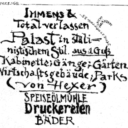 IHMENS &
Total verlassen
Palast in
nistischem Stil, aus
Kabinette; Gänge; Gärten
Wirtschaftsgebäude; Parks
von Hexer
SPEISEÖLMÜHLE
Druckereien
BÄDER